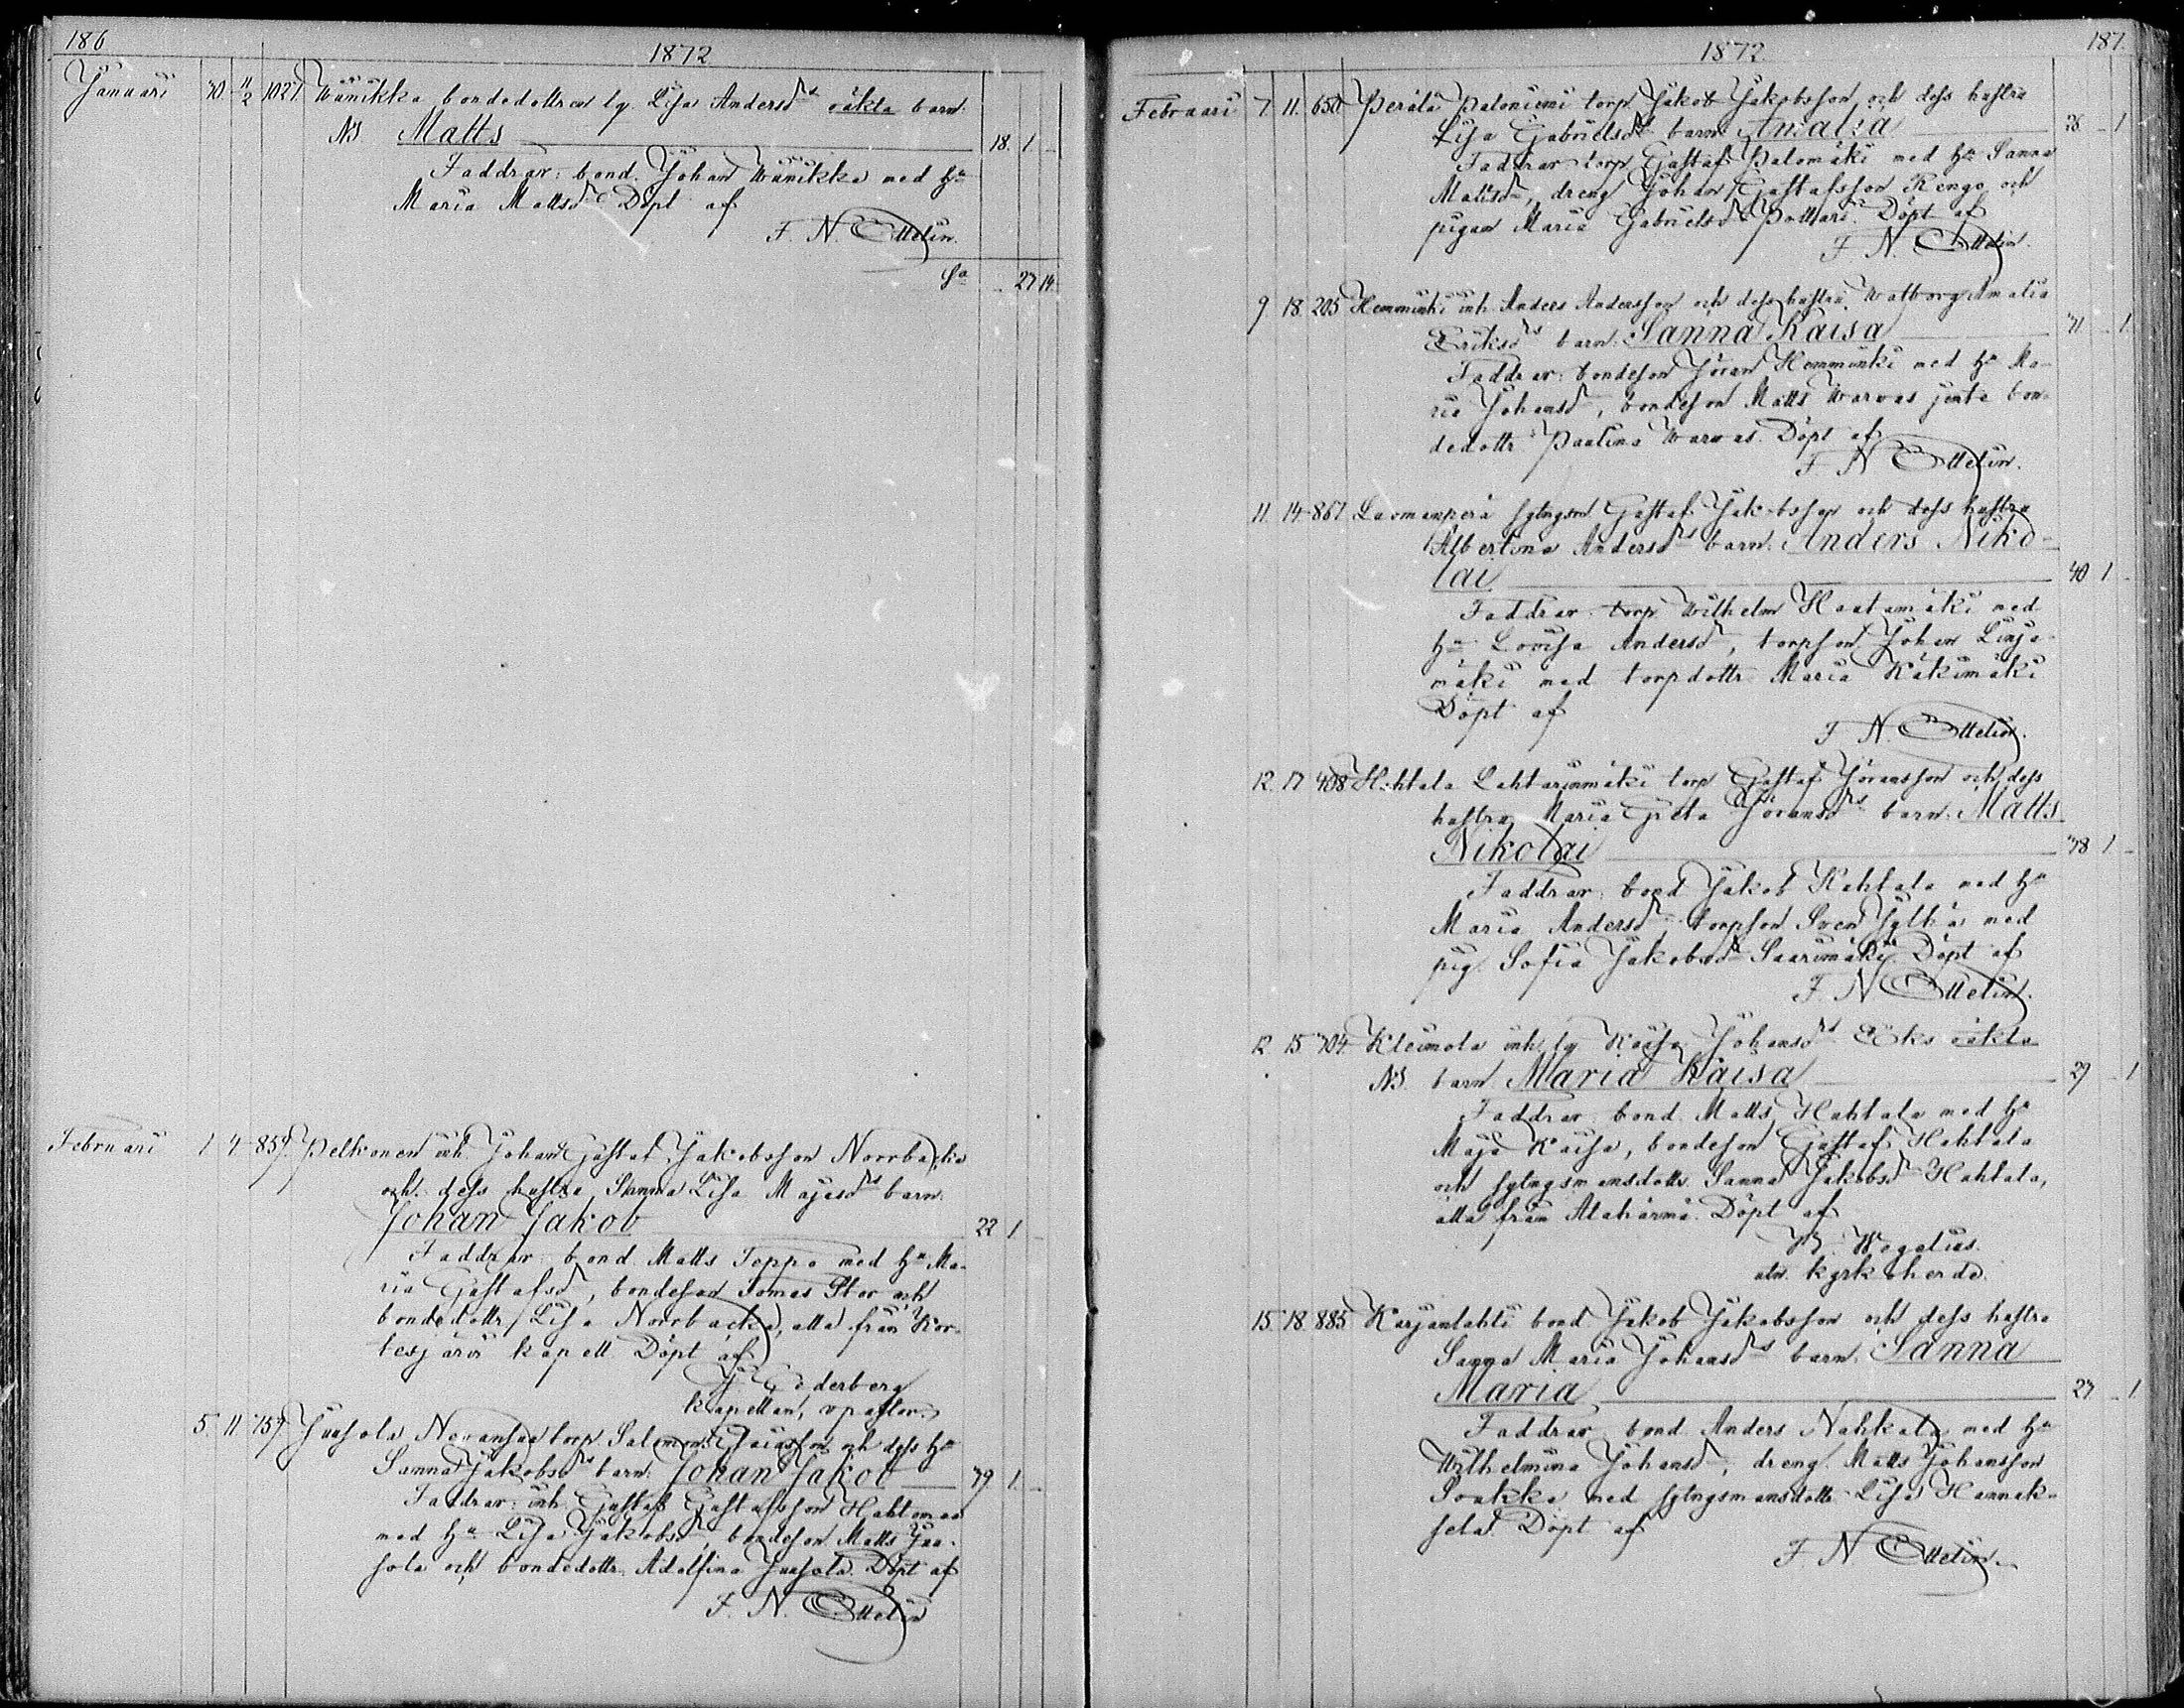 186
1872
Januari 30. 11/2 1021. Wänikka bondedottren lg. Lisa Andersdrs oäkta barn.
NB Matts 18. 1 -
Faddrar: bond. Johan Wänikka med hu
Maria Mattsdr Döpt af
F. N. Ottelin.
Sa 27 14
Februari 1 4 859. Pelkonen inh. Johan Gustaf Jakobsson Norrbacka
och dess hustru Sanna Lisa Majasdrs barn.
Johan Jakob 22 1 -
Faddrar bond Matts Toppo med hu Ma-
ria Gustafsdr, bondeson Tomas Stor och
bondedottr Lisa Norrbacka, alla från Kor-
tesjärvi kapell. Döpt af
Cederberg
kapellan, v pastor.
5. 11. 759. Juusola torp. Salomon och dess hu
Sanna Jakobsdrs barn. Johan Jakob 39 1. -
Faddrar: inh. Gustaf Gustafsson
med hu Lisa Jakobsdr, bondeson Matts Juu-
sola och bondedottr. Adolfina Juusola. Döpt af
F. N. Ottelin
187.
1872.
Februari 7. 11. 650 Perälä Paloniemi torp. Jakob Jakobsson och dess hustru
Lisa Gabrielsdrs barn Amalia 26 - 1
Faddrar torp. Gustaf Palomäki med hu Sanna
Mattsdr, dreng Johan Gustafsson Rengo och
pigan Maria Gabrielsdr Pottari. Döpt af
F. N. Ottelin.
9 18. 205 Hemminki inh Anders Andersson och dess hustru Walborg Amalia
Eriksdrs barn. Sanna Kaisa 31. - 1.
Faddrar: bondeson Jöran Hemminki med hu Ma-
ria Johansdr, bondeson Matts Warvas jemte bon-
dedottr Paulina Warvas. Döpt af
F N Ottelin.
11. 14 867 Laomanperä sytngsm. Gustaf Jakobsson och dess hustru
Albertina Andersdrs barn. Anders Niko-
lai 40 1 -
Faddrar torp Wilhelm Haatamäki med
hu Lovisa Andersdr, torpson Johan Linja-
mäki med torpdottr Maria Käkimäki
Döpt af
F N. Ottelin.
12. 17 408 Hahtala Lahtarinmäki torp Gustaf Jöransson och dess
hustru Maria Greta Jöransdrs barn. Matts
Nikolai 38 1 -
Faddrar: bond Jakob Hahtala med hu
Maria Andersdr torpson Sven Jylhä med
pig. Sofia Jakobsdr Saarimäki. Döpt af
F. N Ottelin.
12 15 704. Kleimola inh lg Kaisa Johansdrs Eks oäkta
NB. barn Maria Kaisa 29 - 1
Faddrar bond. Matts Hahtala med hu
Maja Kaisa, bondeson Gustaf Hahtala
och sytngsmansdottr Sanna Jakobsdr Hahtala,
alla från Alahärmä. Döpt af
Wegelius.
kyrkoherde.
15. 18. 885 Karjanlahti bond Jakob Jakobsson och dess hustru
Sanna Maria Johansdrs barn. Sanna
Maria 27 - 1
Faddrar bond Anders Nahkala med hu
Wilhelmina Johansdr, dreng. Matts Johansson
Soukka med sytngsmansdottr Lisa Hannuk-
sela. Döpt af
F. N Ottelin